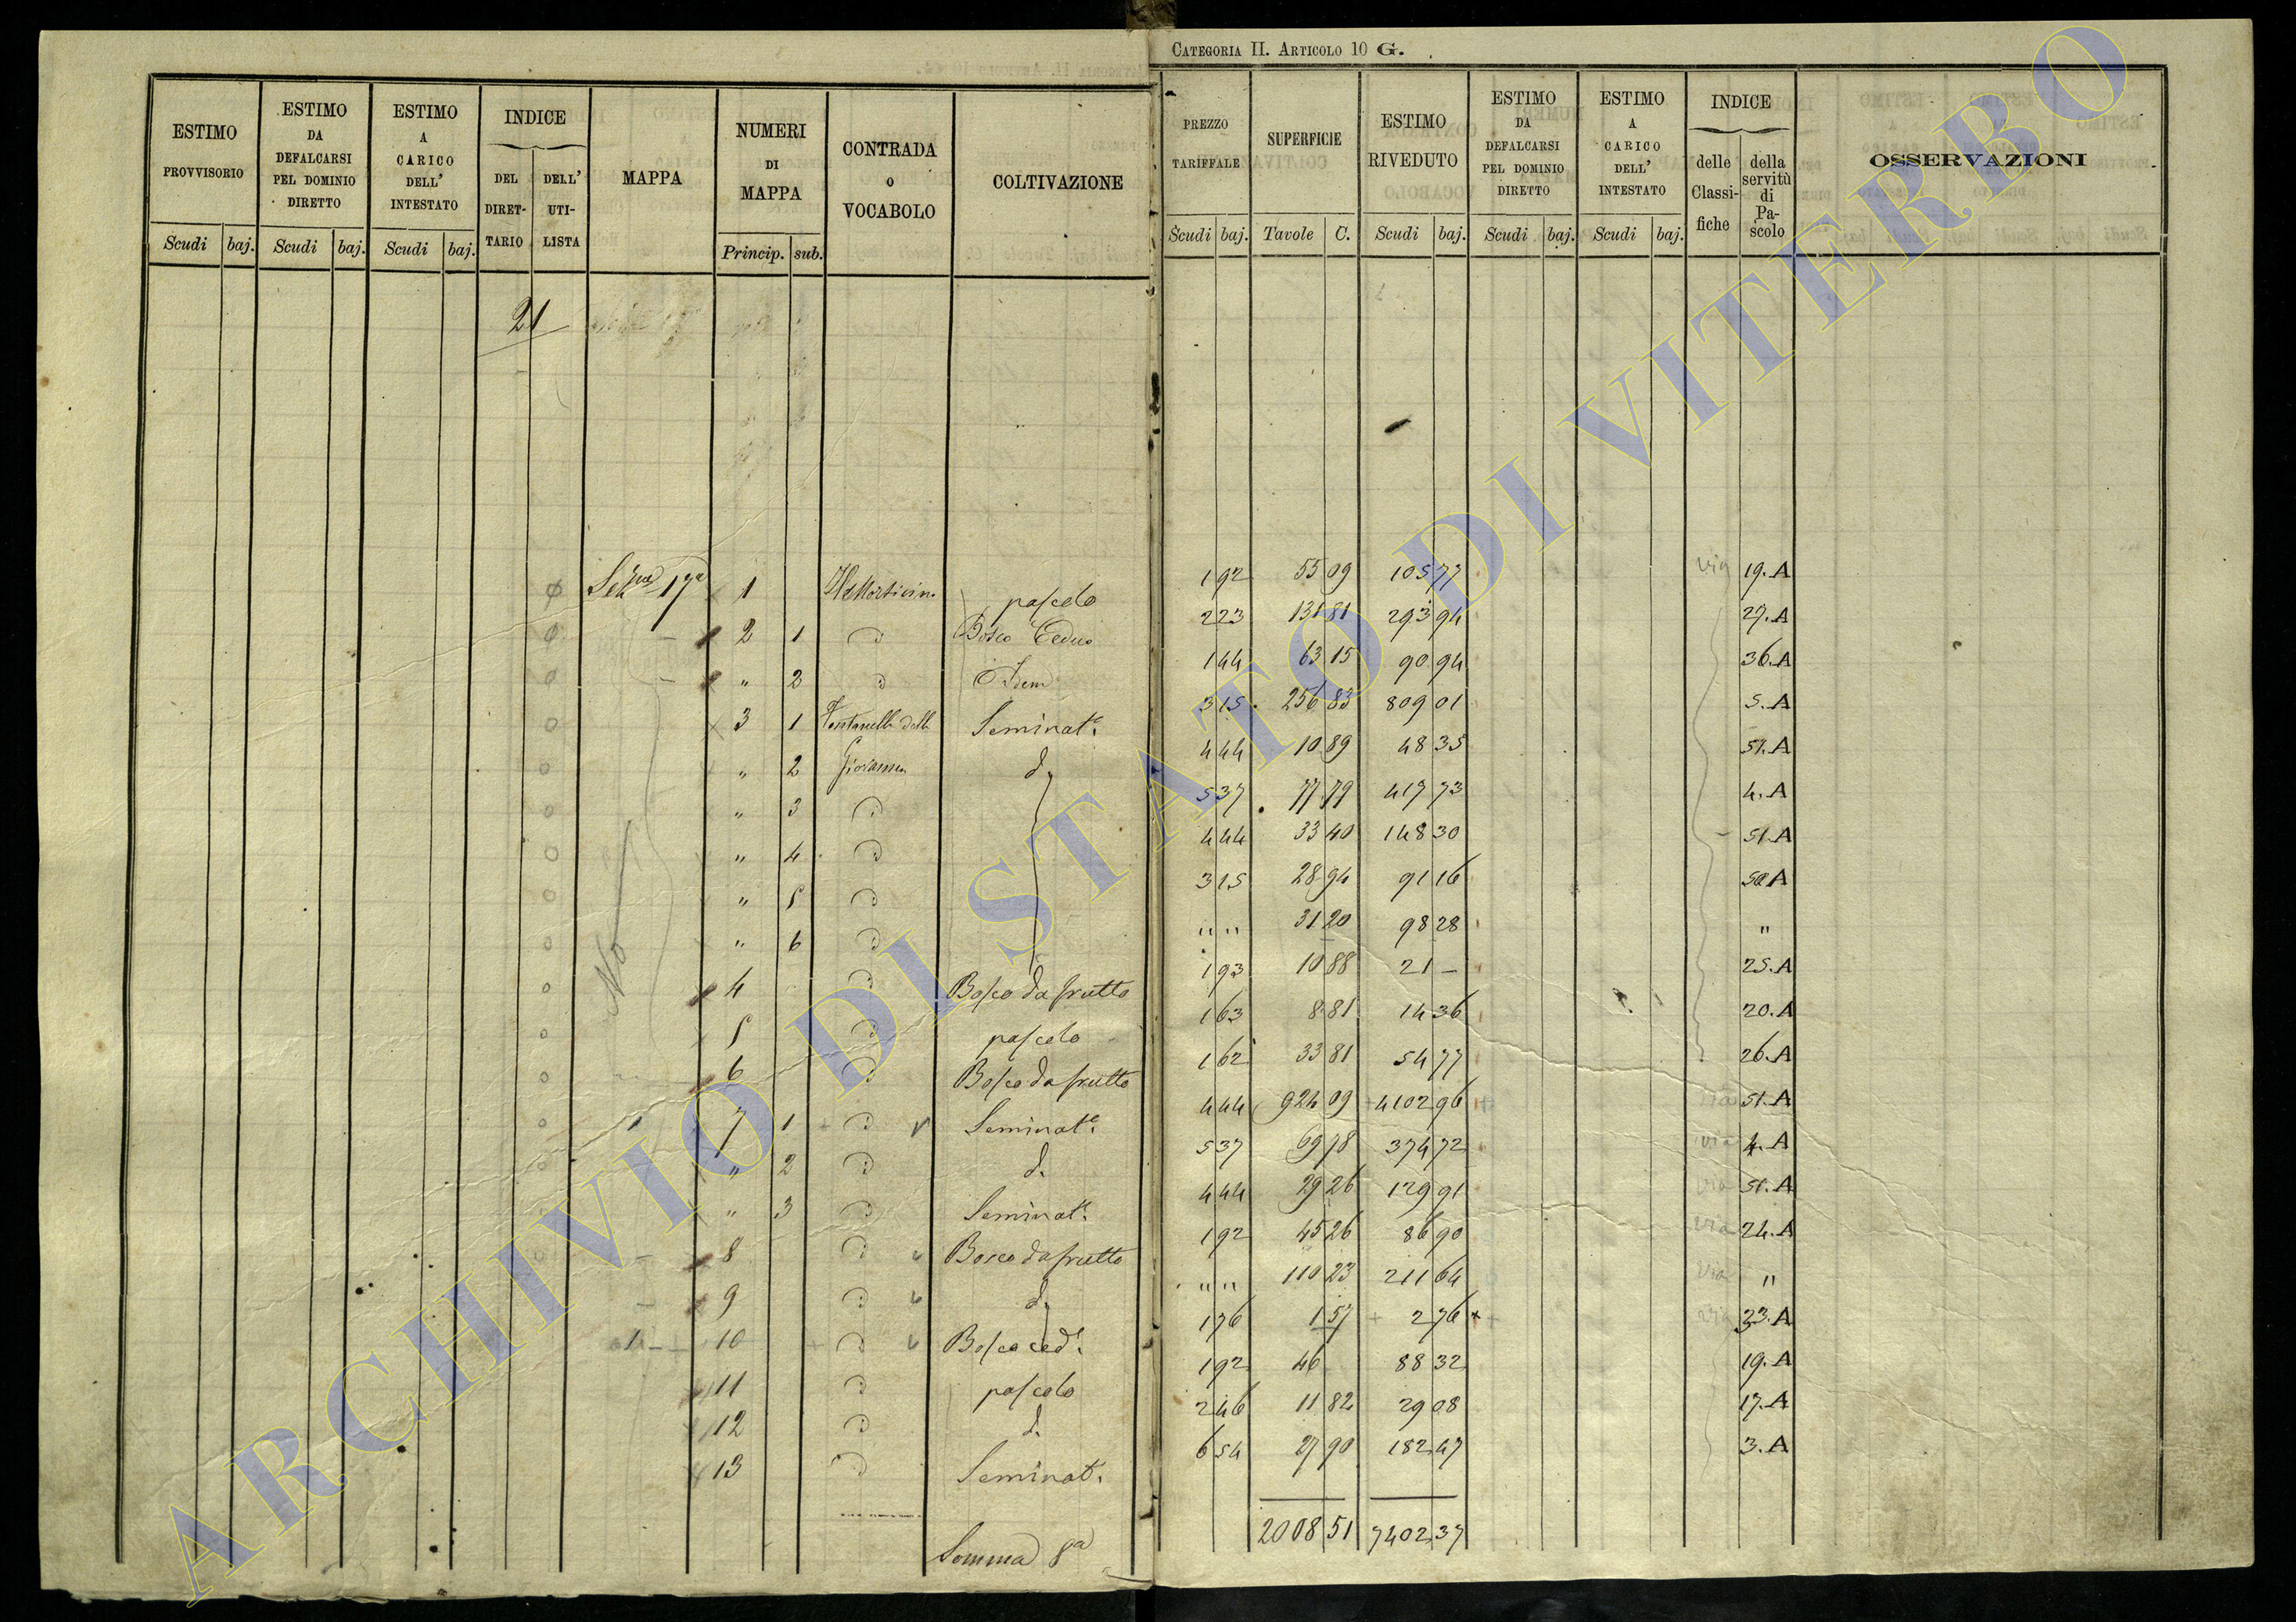 CATEGORIA II. ARTICOLO 10 G.
ESTIMO PROVVISORIO | ESTIMO DA DEFALCARSI PEL DOMINIO DIRETTO | ESTIMO A CARICO DELL' INTESTATO | INDICE DEL DIRETTARIO | DELL' UTILISTA | MAPPA | NUMERI DI MAPPA | CONTRADA O VOCABOLO | COLTIVAZIONE | PREZZO TARIFFALE | SUPERFICIE | ESTIMO RIVEDUTO | ESTIMO DA DEFALCARSI PEL DOMINIO DIRETTO | ESTIMO A CARICO DELL' INTESTATO | INDICE delle Classifiche | della servitù di Pascolo | OSSERVAZIONI
Scudi baj. Scudi baj. Scudi baj. Princip. sub. Scudi baj. Tavole C. Scudi baj. Scudi baj. Scudi baj.
21
17a 1 pascolo 192 55 09 105 77 via 19.A
2 1 Bosco Ceduo 223 131 81 293 94 27.A
" 2 Idem 144 63 15 90 94 36.A
3 1 Seminat. 315 256 83 809 01 5.A
" 2 Giovanna d. 444 10 89 48 35 51.A
" 3 537 77 79 417 73 4.A
" 4 444 33 40 148 30 51.A
" 5 315 28 94 91 16 50A
" 6 " " 31 20 98 28 "
4 Bosco da frutto 193 10 88 21 – 25.A
5 pascolo 163 8 81 14 36 20.A
6 Bosco da frutto 162 33 81 54 77 26.A
7 1 Seminat. 444 924 09 4102 96 via 51.A
" 2 d. 537 69 78 374 72 via 4.A
" 3 Seminat. 444 29 26 129 91 via 51.A
8 Bosco da frutto 192 45 26 86 90 via 24.A
9 d. " " 110 23 211 64 via "
10 Bosco ced. 176 1 57 2 76 via 33.A
11 pascolo 192 46 88 32 19.A
12 d. 246 11 82 29 08 17.A
13 Seminat. 654 27 90 182 47 3.A
No
Somma 8a 2008 51 7402 37
ARCHIVIO DI STATO DI VITERBO